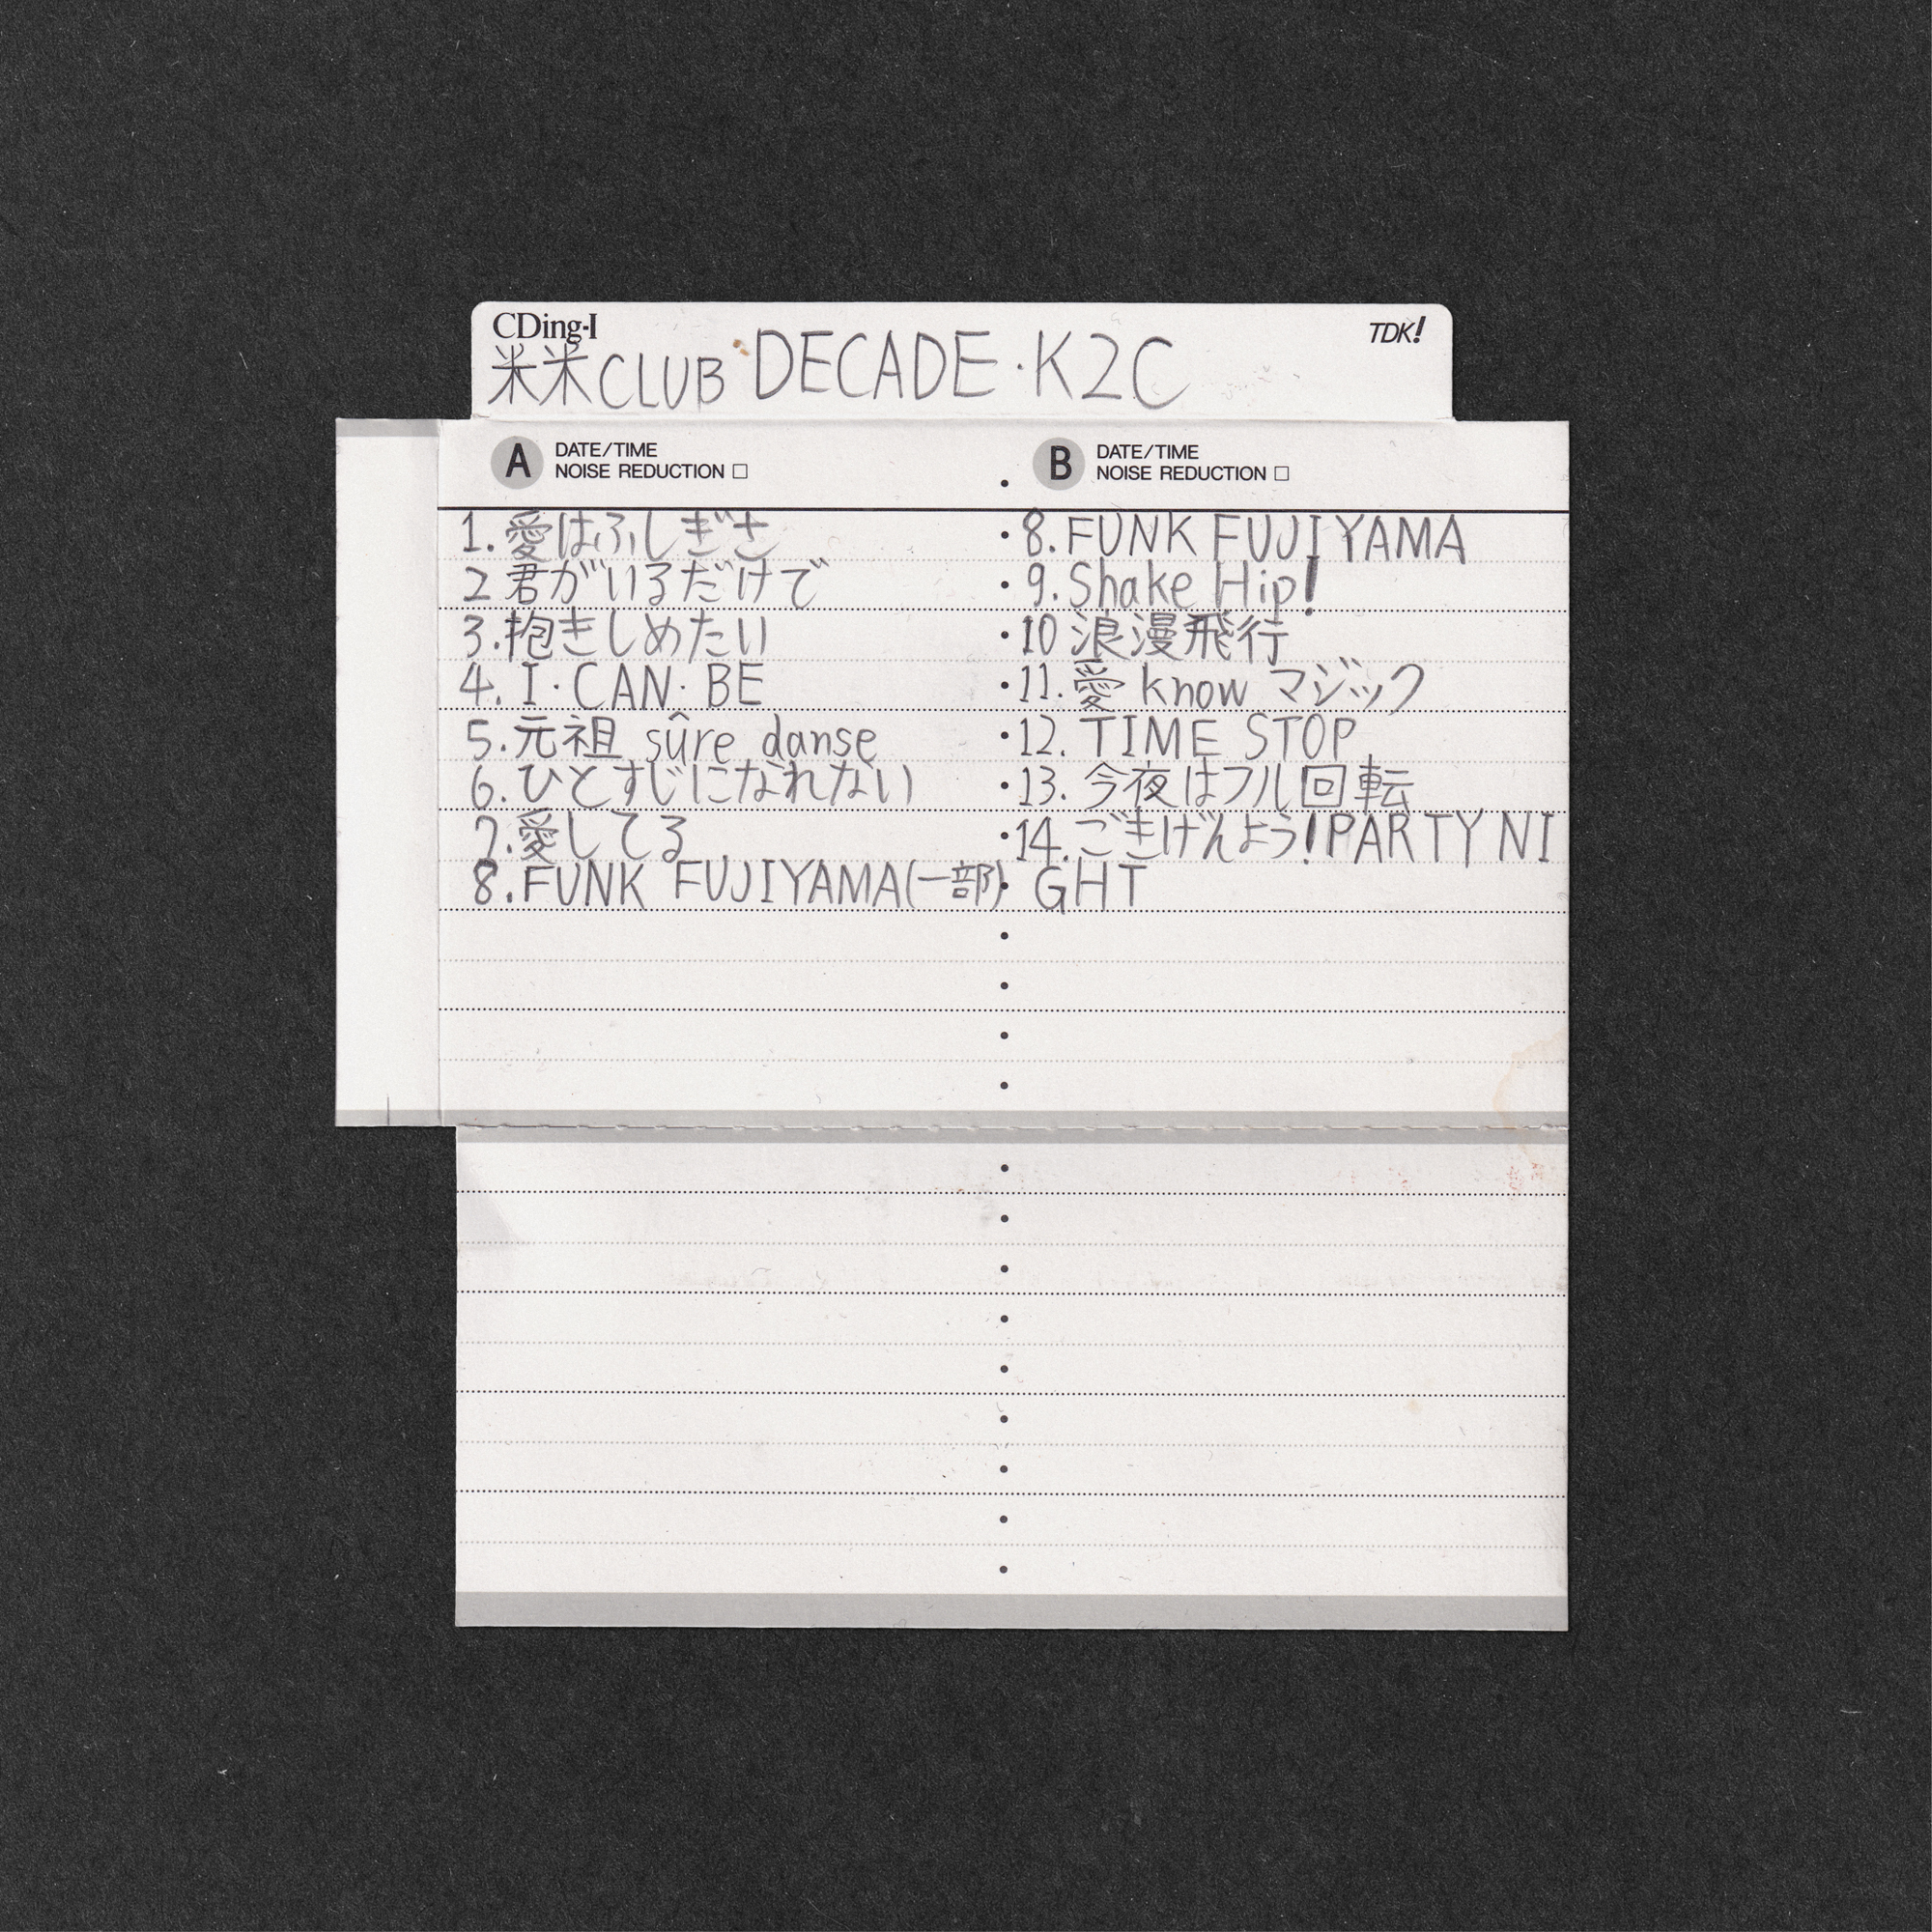 CDing-I TDK!
米米CLUB DECADE・K2C
A DATE/TIME
NOISE REDUCTION □
B DATE/TIME
NOISE REDUCTION □
1.愛はふしぎさ
2 君がいるだけで
3.抱きしめたい
4. I・CAN・BE
5.元祖 sûre danse
6.ひとすじになれない
7.愛してる
8.FUNK FUJIYAMA(一部)
8.FUNK FUJIYAMA
9.Shake Hip!
10 浪漫飛行
11.愛 know マジック
12.TIME STOP
13.今夜はフル回転
14.ごきげんよう!PARTY NI
GHT